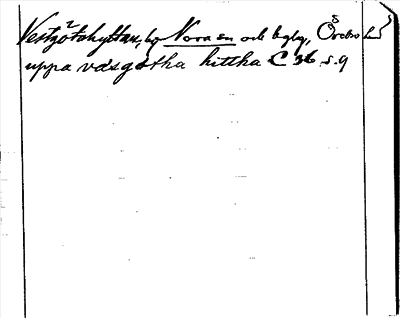 Vestgötahyttan, by Nora sn och bglg, Örebro L
uppa väsgötha hittha C 36 s. 9